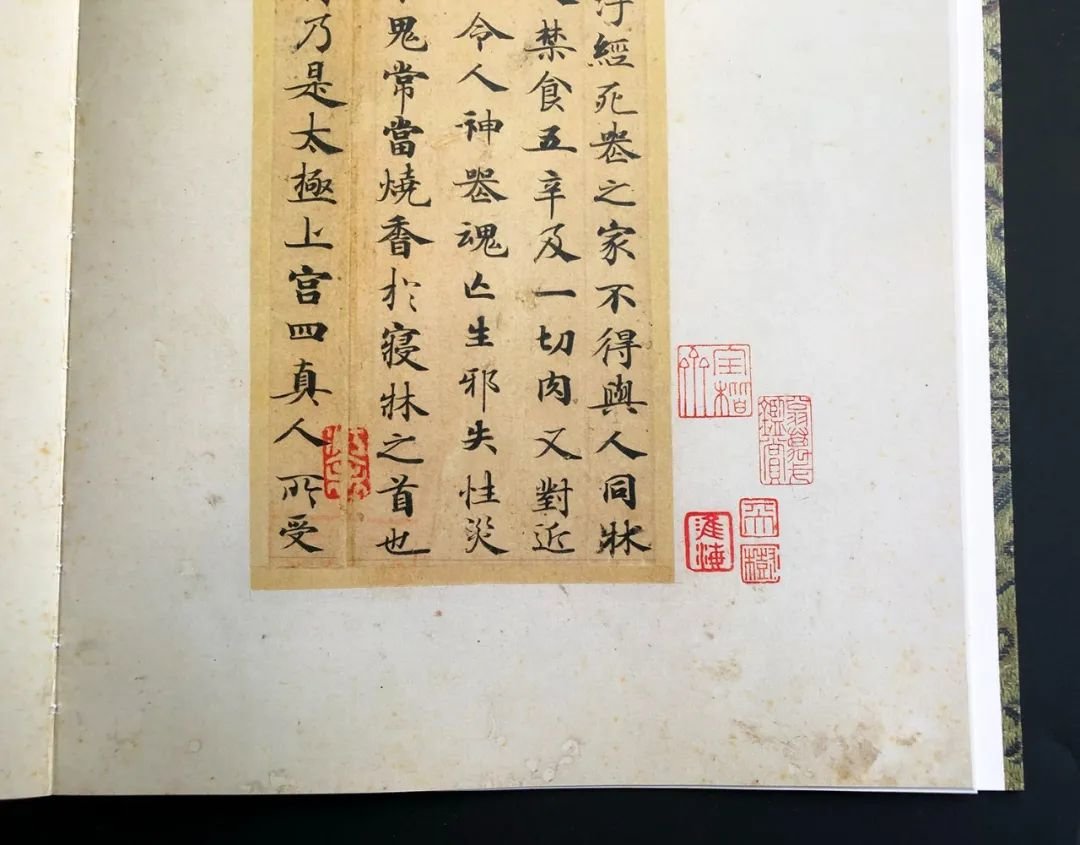 經死喪之家不得與人同牀
禁食五辛及一切肉又對近
令人神喪魂亡生邪失性災
鬼常當燒香於寢牀之首也
乃是太極上宮四真人所受
翁萬戈鑑賞